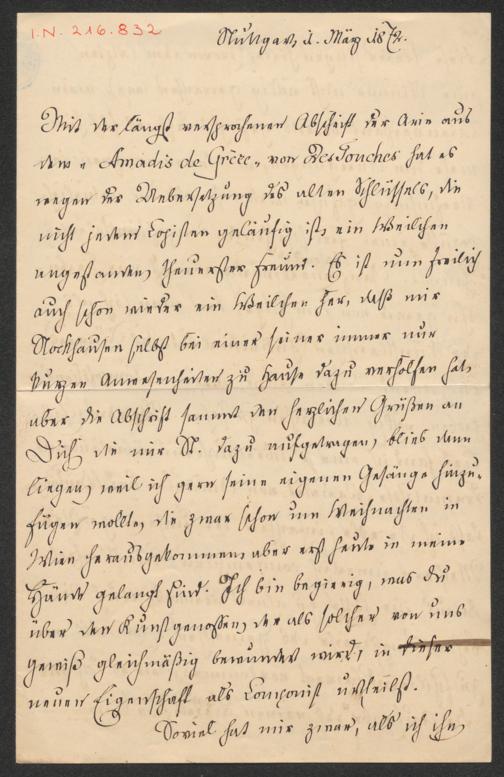 I.N. 216.832
Stuttgart, 1. März 1872.
Mit der längst versprochenen Abschrift der Arie aus
dem „Amadis de Grèce„ von Destouches hat es
wegen der Uebersetzung des alten Schlüssels, die
nicht jedem Copisten geläufig ist, ein Weilchen
angestanden, theuerster Freund. Es ist nun freilich
auch schon wieder ein Weilchen her, daß mir
Stockhausen selbst bei einer seiner immer nur
kurzen Anwesenheiten zu Hause dazu verholfen hat,
aber die Abschrift sammt den herzlichen Grüßen an
Dich, die mir St. dazu aufgetragen, blieb dann
liegen, weil ich gern seine eigenen Gesänge hinzu-
fügen wollte, die zwar schon um Weihnachten in
Wien herausgekommen, aber erst heute in meine
Hände gelangt sind. Ich bin begierig, was Du
über den Kunstgenossen, der als solcher von uns
gewiß gleichmäßig bewundert wird, in dieser
neuen Eigenschaft als Componist urtheilst.
Soviel hat mir zwar, als ich ihn